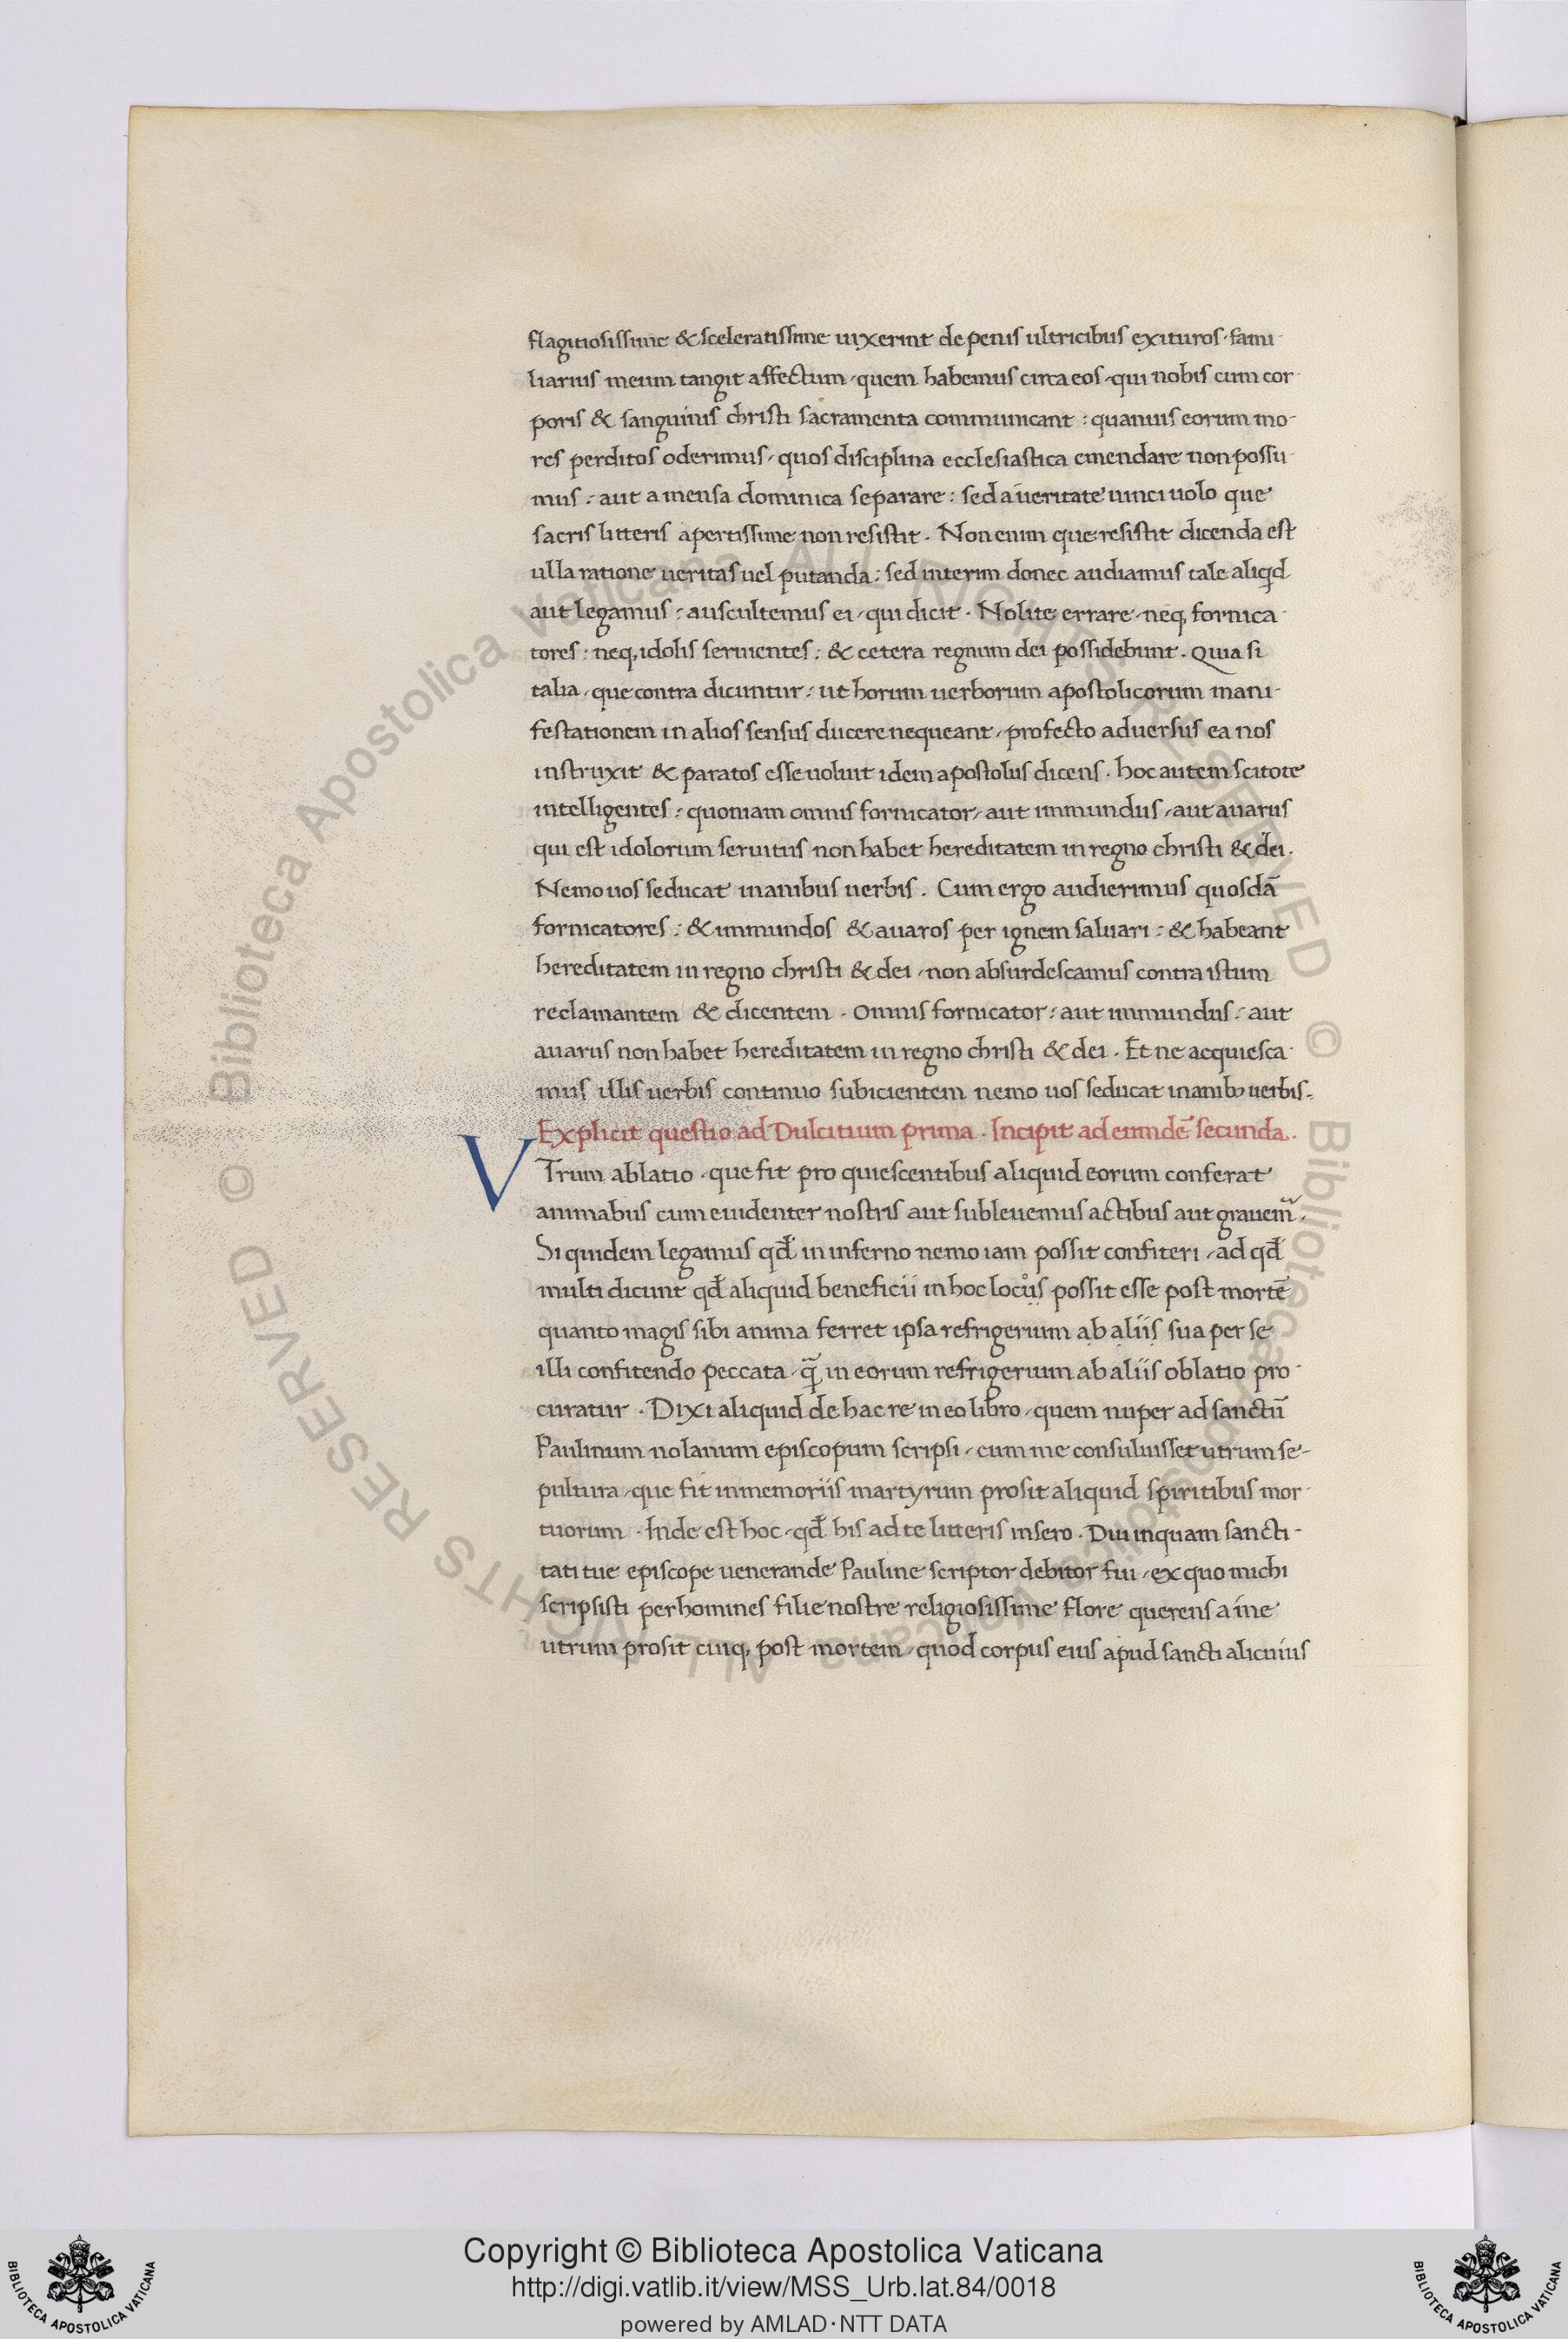 flagitiosissime & sceleratissime uixerint de penis ultricibus exituros · fami-
liarius meum tangit affectum · quem habemus circa eos · qui nobis cum cor-
poris & sanguinis christi sacramenta communicant : quamuis eorum mo-
res perditos oderimus · quos disciplina ecclesiastica emendare non possu-
mus : aut a mensa dominica separare : sed a ueritate uinci uolo que
sacris litteris apertissime non resistit . Non enim que resistit dicenda est
ulla ratione ueritas uel putanda : sed interim donec audiamus tale aliqd
aut legamus : auscultemus ei · qui dicit . Nolite errare · neq, fornica-
tores : neq, idolis seruientes : & cetera regnum dei possidebunt . Quia si
talia · que contra dicuntur : ut horum uerborum apostolicorum mani-
festationem in alios sensus ducere nequeant · profecto aduersus ea nos
instruxit & paratos esse uoluit idem apostolus dicens . hoc autem scitote
intelligentes : quoniam omnis fornicator · aut inmundus · aut auarus
qui est idolorum seruitus non habet hereditatem in regno christi & dei .
Nemo uos seducat inanibus uerbis . Cum ergo audierimus quosdā
fornicatores : & inmundos & auaros per ignem saluari : & habeant
hereditatem in regno christi & dei · non absurdescamus contra istum
reclamantem & dicentem . Omnis fornicator : aut inmundus : aut
auarus non habet hereditatem in regno christi & dei . Et ne acquiesca-
mus illis uerbis continuo subicientem nemo uos seducat inanibꝫ uerbis .
Explicit questio ad Dulcitium prima . Incipit ad eundē secunda .
VTrum ablatio · que fit pro quiescentibus aliquid eorum conferat
animabus cum euidenter nostris aut subleuemus actibus aut grauem̃ .
Si quidem legamus qđ in inferno nemo iam possit confiteri · ad qđ
multi dicunt qđ aliquid beneficii in hoc locus possit esse post mortē
quanto magis sibi anima ferret ipsa refrigerium ab aliis sua per se
illi confitendo peccata · q̄ in eorum refrigerium ab aliis oblatio pro-
curatur . Dixi aliquid de hac re in eo libro · quem nuper ad sanctū
Paulinum nolanum episcopum scripsi · cum me consuluisset utrum se-
pultura · que fit in memoriis martyrum prosit aliquid spiritibus mor-
tuorum . Inde est hoc · qđ his ad te litteris insero . Diu inquam sancti-
tati tue episcope uenerande Pauline scriptor debitor fui · ex quo michi
scripsisti per homines filie nostre religiosissime flore querens a me
utrum prosit cuiq, post mortem · quod corpus eius apud sancti alicuius
Copyright © Biblioteca Apostolica Vaticana
http://digi.vatlib.it/view/MSS_Urb.lat.84/0018
powered by AMLAD·NTT DATA